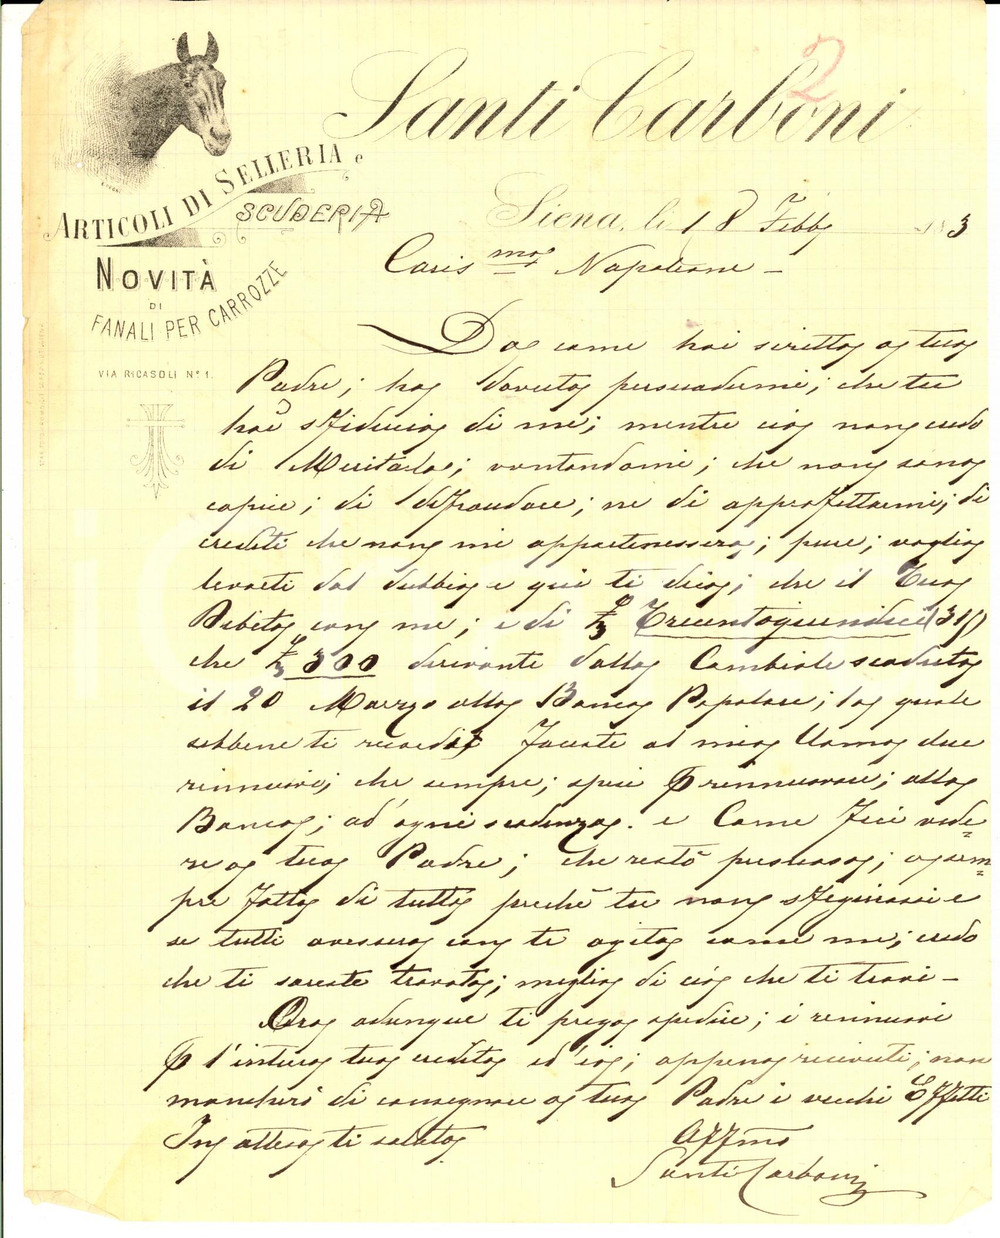 Santi Carboni
2
ARTICOLI DI SELLERIA e
SCUDERIA
NOVITÀ
DI
FANALI PER CARROZZE
VIA RICASOLI N.º 1.
Siena, li 18 Febb 3
Caris mo Napoleone -
Da come hai scritto a tuo
Padre; ho dovuto persuadermi; che tu
hai sfiducia di me; mentre cio non credo
di Meritarlo; vantandomi; che non sono
capace; di defraudare; ne di approfittarmi; di
crediti che non mi appartenessero; pure; voglio
levarti dal dubbio e qui ti dico; che il Tuo
Debito con me; e di £ Trecentoquindici (315)
che £ 300 derivante dalla Cambiale scaduta
il 20 Marzo alla Banca Popolare; la quale
sebbene ti ricordi Faceste al mio Uomo due
rinnuovi; che sempre; spese rinnuovare; alla
Banca; ad' ogni scadenza. e Come Feci vede=
re a tuo Padre; che restò persuaso; a sem=
pre fatto di tutto perchè tu non sfigurassi e
se tutti avessero con te agito come me; credo
che ti sareste trovato; meglio di ciò che ti trovi -
Ora adunque ti prego spedire; i rinnuovi
P l'intero tuo credito ed' io; appena ricevuti; non
mancherò di consegnare a tuo Padre i vecchi Effetti
In atteso ti saluto
Affmo
Santi Carboni